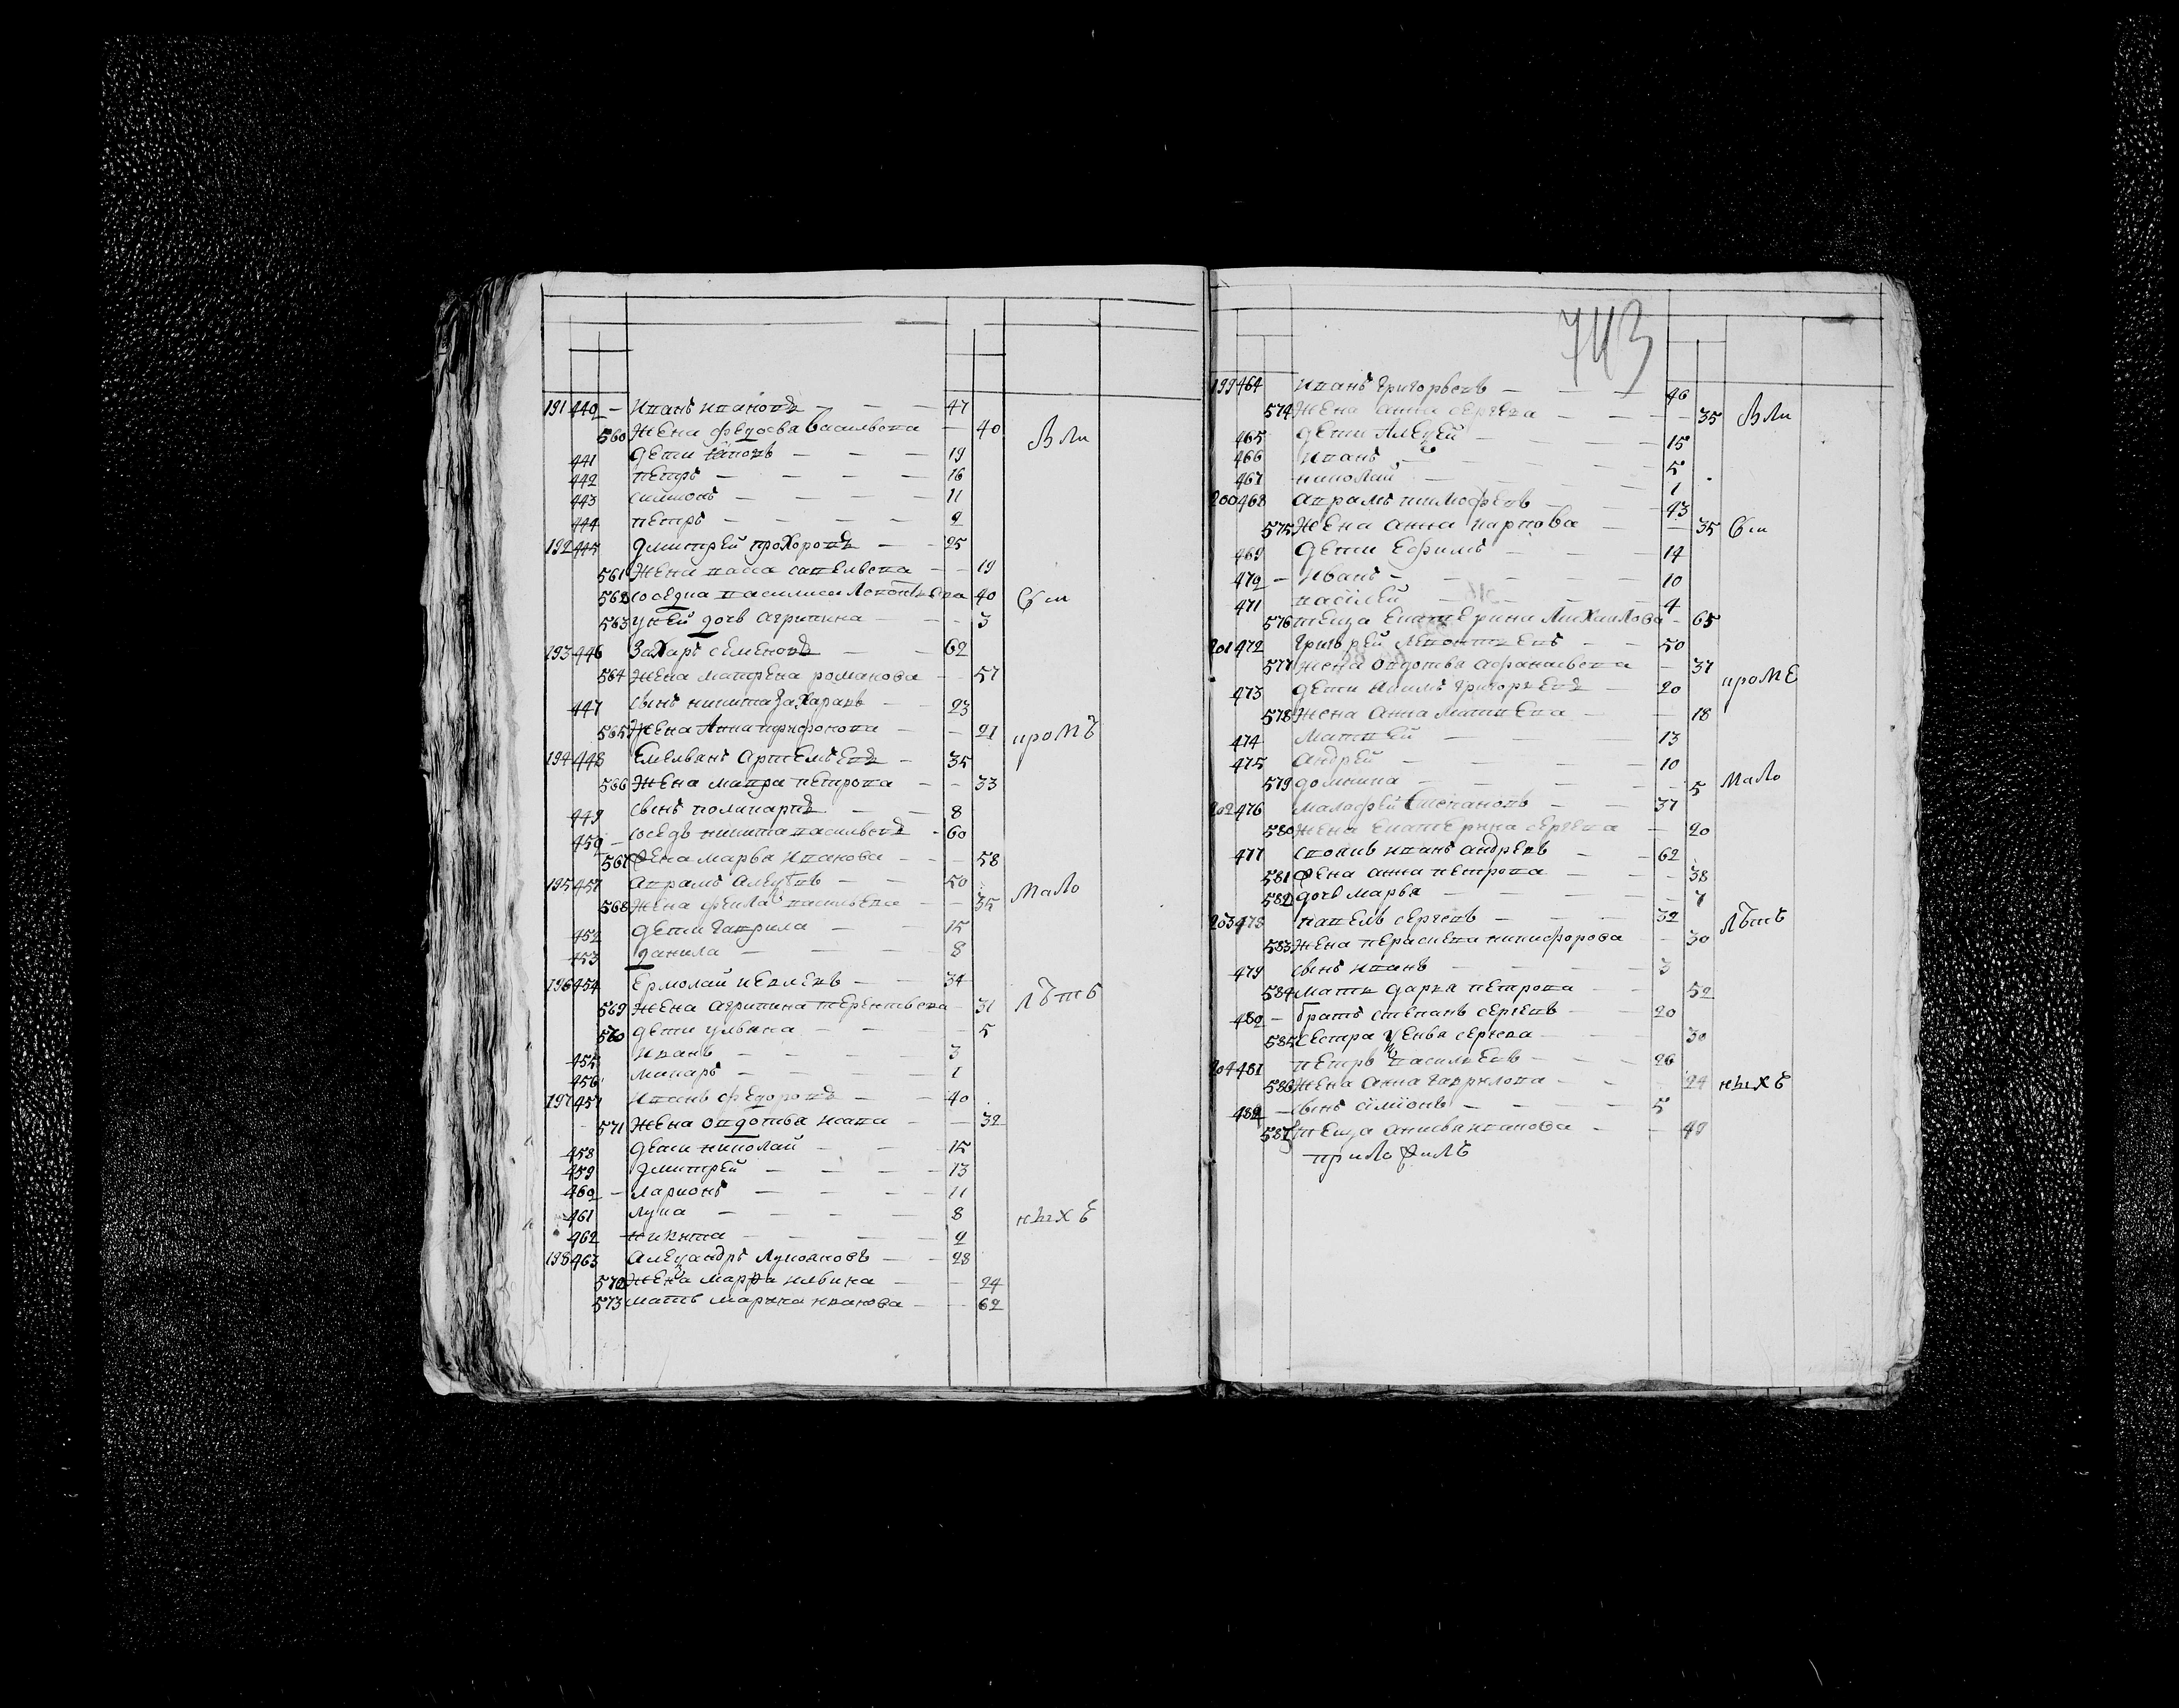 191 440 - Иванъ ивановъ - - - 47
560 жена федосья васильева - 40
Вли
441 дети гапонъ - - - 19
442 петръ - - - - 16
443 симионъ - - - 11
444 петръ - - - - 2
192 445 дмитрей прохоровъ - - 25
561 жена васса савельева - - 19
562 соседка василиса леонтьева 40
Сти
563 у ней дочь агрипина - - - 3
193 446 Захаръ семеновъ - - 62
564 жена матрена романова - - 57
447 сынъ никита захаровъ - - 23
565 жена Анна никифорова - - 21
кромЪ
194 448 Емельянъ артемьевъ - 35
566 жена мавра петрова - - 33
449 сынъ поликарпъ - - 8
450 - соседъ никита васильевъ - 60
567 жена марья иванова - - - 58
195 451 аврамъ алеѯевъ - - 50
568 жена фекла васильева - - 35
мало
452 дети гаврила - - 15
453 данила - - - 8
196 454 Ермолай иевлевъ - - 34
569 жена агрипина терентьева - 31
лЪтЪ
570 дети ульяна - - - 5
455 иванъ - - - - 3
456 макаръ - - - - 1
197 457 иванъ федоровъ - - 40
571 жена овдотья исаева - - 32
458 дети николай - - - 15
459 дмитрей - - - 13
460 - ларионъ - - - - 11
461 лука - - - - 8
ныхЕ
462 никита - - - - 2
198 463 алеѯандръ лукояновъ - - 28
572 жена марфа ильина - - 24
573 мать марина иванова - - 62
743
199 464 иванъ григорьевъ - - - 46
574 жена анна сергеева - - - 35
Вли
465 дети алеѯей - - - 15
466 иванъ - - - - 5
467 николай - - - 1
200 468 аврамъ тимофеевъ - - 43
575 жена анна карпова - - 35
Сти
469 дети ефимъ - - - 14
470 - иванъ - - - - 10
471 василей - - - 4
576 теща екатерина михаилова - 65
201 472 григорей леонтьевъ - - 50
577 жена овдотья афанасьева - 37
кромЕ
473 дети акимъ григорьевъ - 20
578 жена анна матвеева - - 18
474 матвей - - - 13
475 андрей - - - 10
579 домнина - - - 5
мало
202 476 малафей степановъ - - 37
580 жена екатерина сергеева - 20
477 своякъ иванъ андреевъ - - 62
581 жена анна петрова - - - 38
582 дочь марья - - - 7
203 478 павелъ сергеевъ - - - 32
лЪтЪ
583 жена прасковья никифорова - 30
479 сынъ иванъ - - - 3
584 мать дарья петрова - - 52
480 - братъ степанъ сергеевъ - - 20
585 сестра ѯенья сергеева - - 30
204 481 петръ васильевъ - - - 26
586 жена анна гаврилова - - 24
ныхЕ
482 - сынъ симионъ - - - 5
587 теща анисья иванова - - 49
приложилЪ